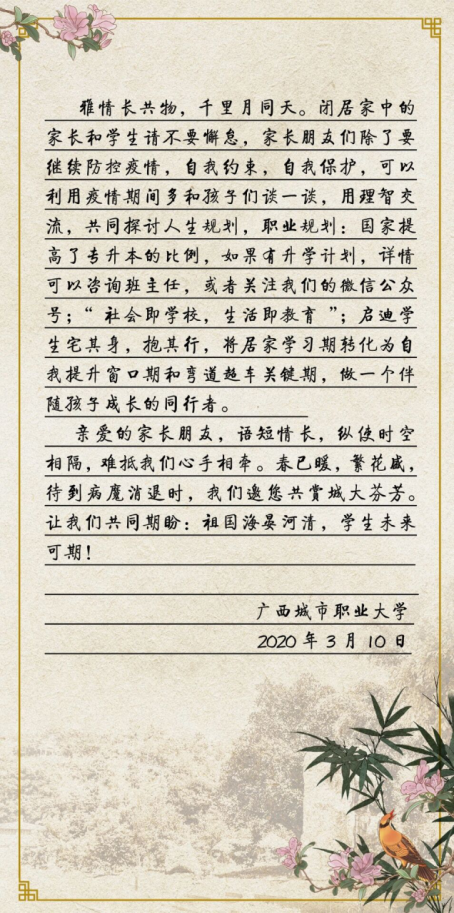 雅情长共物，千里月同天。闭居家中的
家长和学生请不要懈怠，家长朋友们除了要
继续防控疫情，自我约束，自我保护，可以
利用疫情期间多和孩子们谈一谈，用理智交
流，共同探讨人生规划，职业规划：国家提
高了专升本的比例，如果有升学计划，详情
可以咨询班主任，或者关注我们的微信公众
号；“社会即学校，生活即教育”；启迪学
生宅其身，抱其行，将居家学习期转化为自
我提升窗口期和弯道超车关键期，做一个伴
随孩子成长的同行者。
亲爱的家长朋友，语短情长，纵使时空
相隔，难抵我们心手相牵。春已暖，繁花盛，
待到病魔消退时，我们邀您共赏城大芬芳。
让我们共同期盼：祖国海晏河清，学生未来
可期！
广西城市职业大学
2020年3月10日